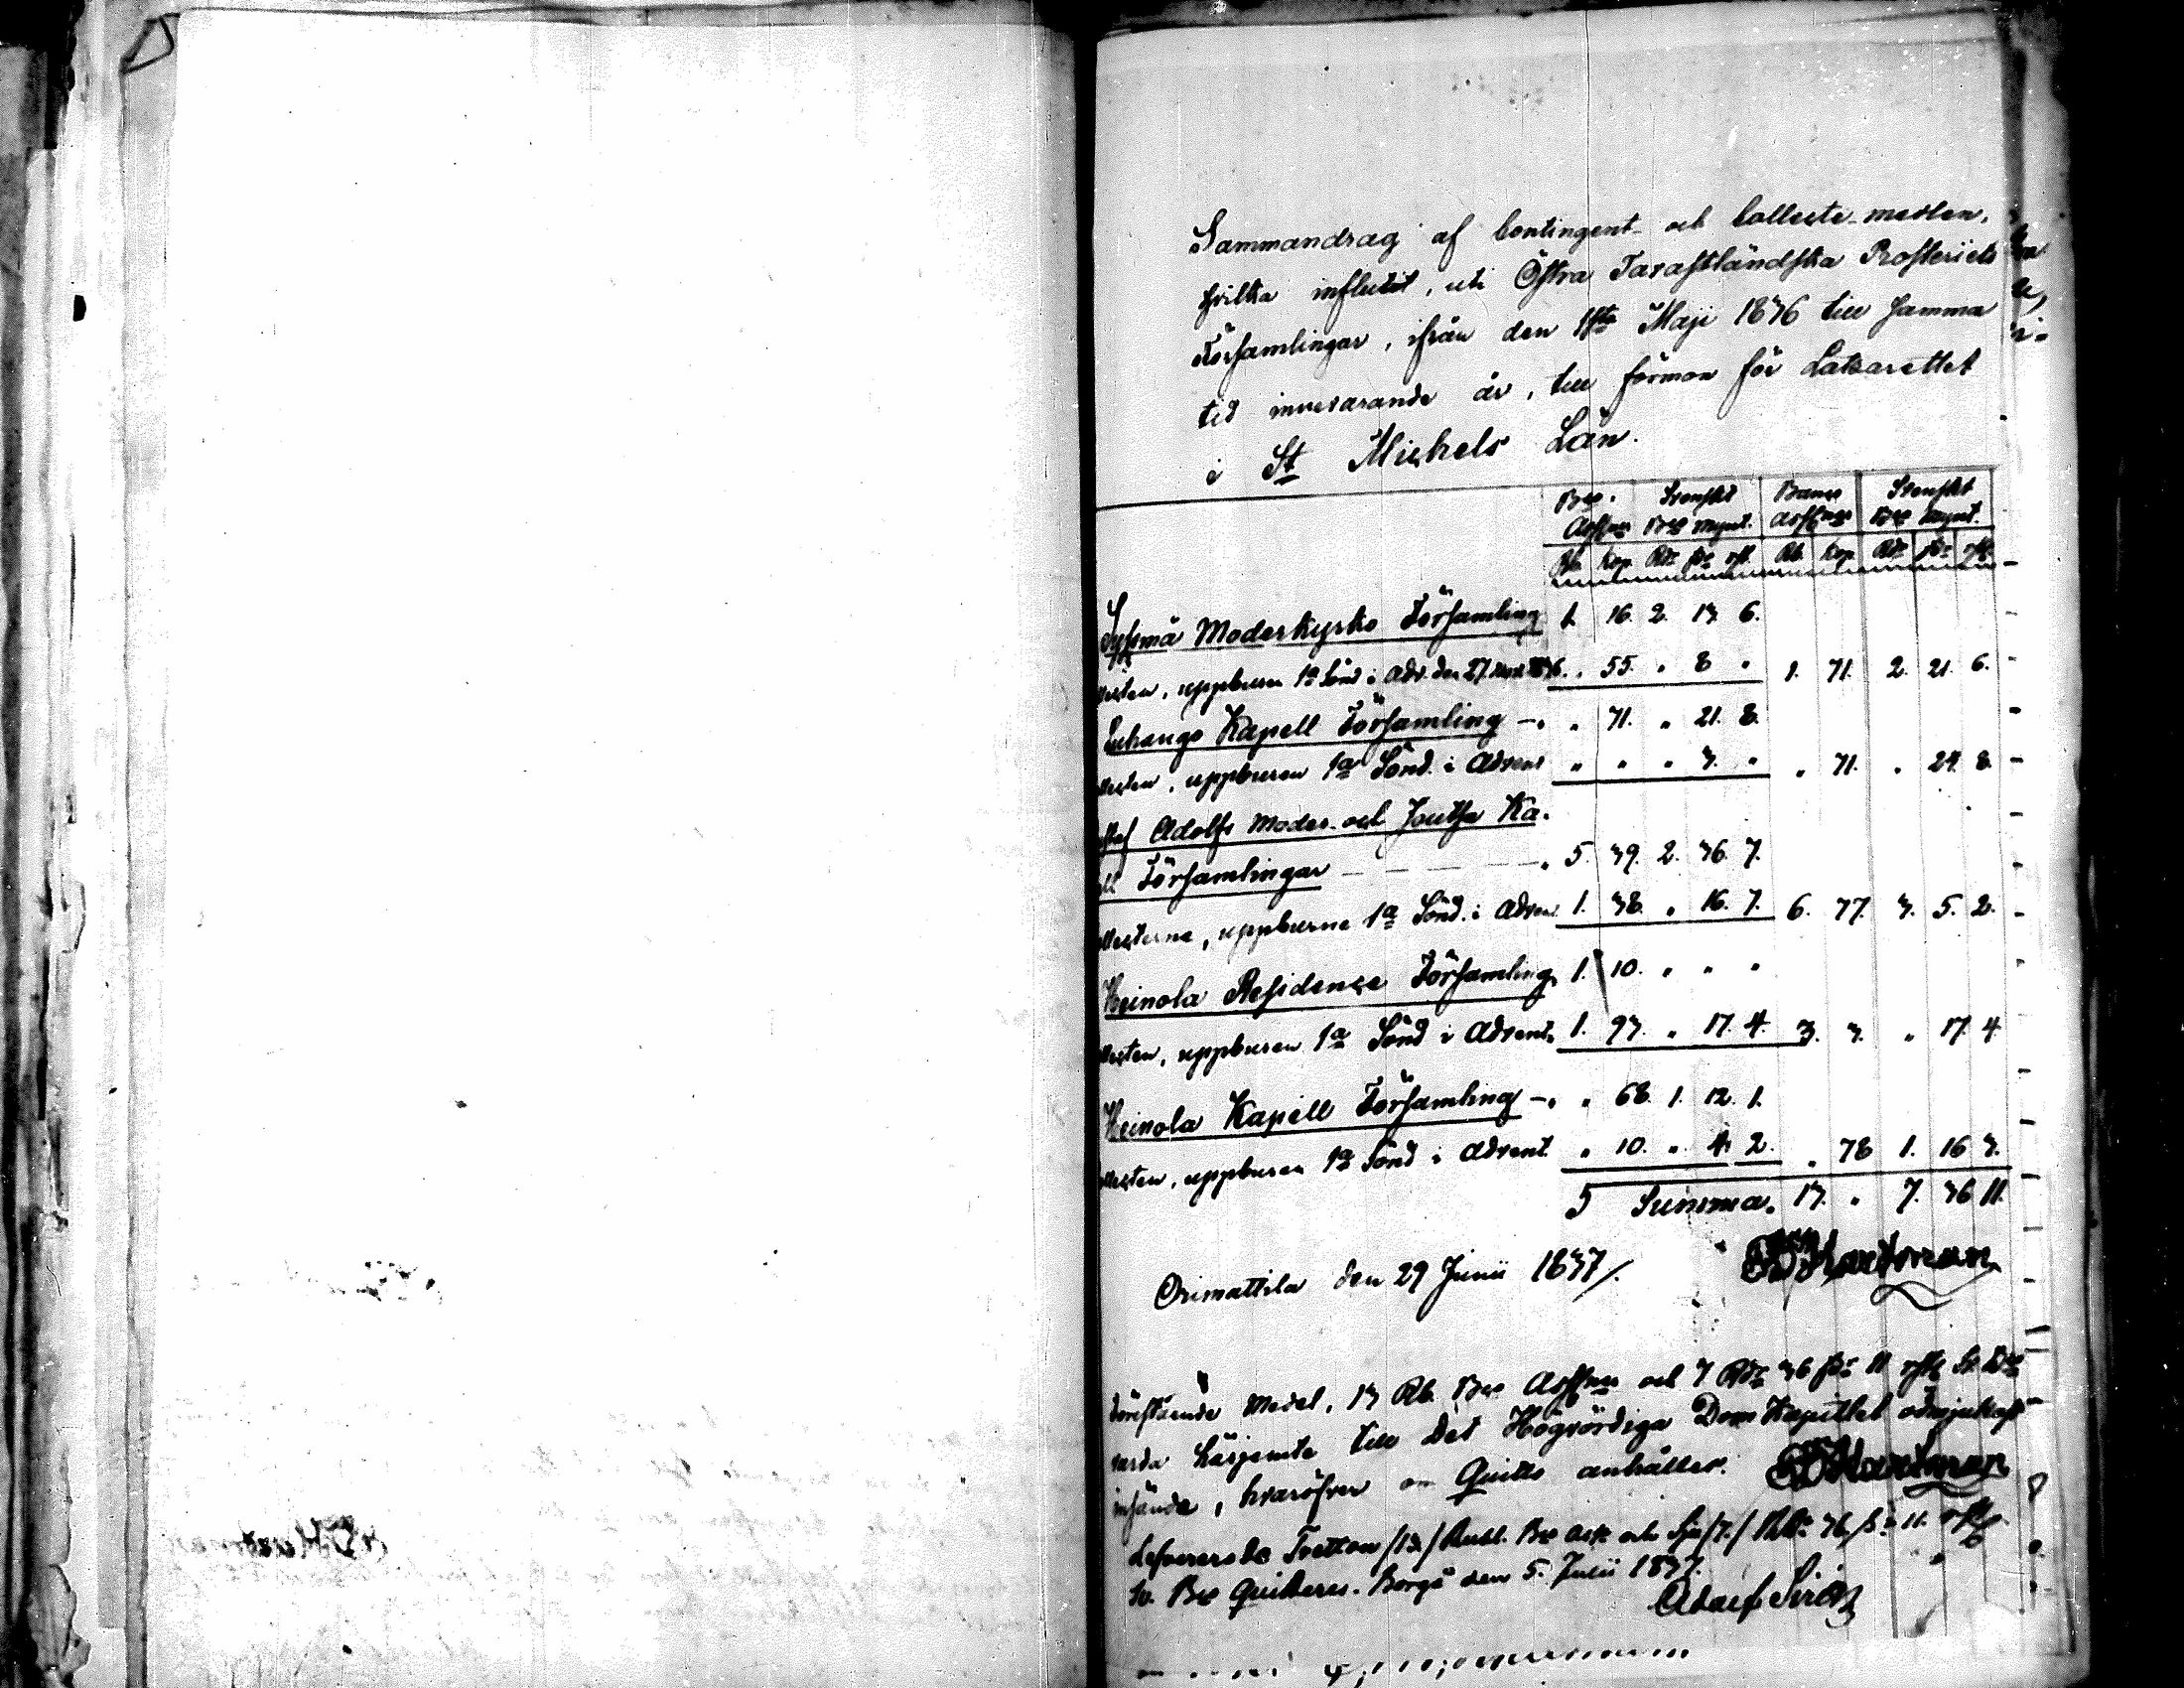 Sammandrag af Contingent- och Collecte-medlen,
hvilka influtit, uti Östra Tavastländska Prosteriets
Församlingar, ifrån den 1sta Maji 1836 till samma
tid innevarande år, till förmon för Latzarettet
i St Michels Län.
Bco Svenskt Banco Svenskt
Assne Bco mynt. Assne Bco mynt.
Rb. kop. Rdr sk. rst. Rb. kop. Rdr sk. rst.
Sysmä Moderkyrko Församling 1. 16. 2. 13. 6.
lecten, uppburen 1a Sönd. i Adv. den 27. Nov. 1836. " 55. " 8 " 1. 71. 2. 21. 6.
Luhango Kapell Församling " 71. " 21. 8.
lecten, uppburen 1a Sönd. i Advent " " " 3. " " 71. " 24. 8.
staf Adolfs Moder- och Joutsa Ka-
ll Församlingar 5. 39. 2. 36. 7.
llecterne, uppburne 1a Sönd. i Advent 1. 38. " 16. 7. 6. 77. 3. 5. 2.
Heinola Residence Församling 1. 10. " " "
llecten, uppburen 1a Sönd i Advent. 1. 93. " 17. 4. 3. 3. " 17. 4.
Heinola Kapell Församling " 68. 1. 12. 1.
llecten, uppburen 1a Sönd i Advent. " 10. " 4. 2. " 78 1. 16 3.
Summa. 13. " 7. 36 11.
Orimattila den 29 Junii 1837. Hartman
Förestående Medel, 13 Rb. Bco Assne och 7 Rdr 36 sk. 11 rst. Sv. Bco
varda härjemte till Det Högvördiga Dom Kapitlet ödmjukast
insände, hvaröfver om Quitto anhålles. Hartman
Lefvererade Tretton /13./ Rubl. Bco Ass. och Sju /7./ Rdr 36 sk. 11. rst.
Sv. Bco Quitteras. Borgå den 5. Julii 1837.
Adolf Sirén